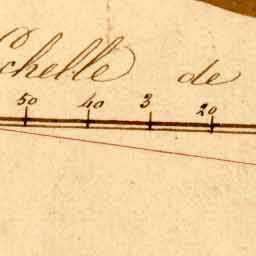 Echelle de
50 40 3 20